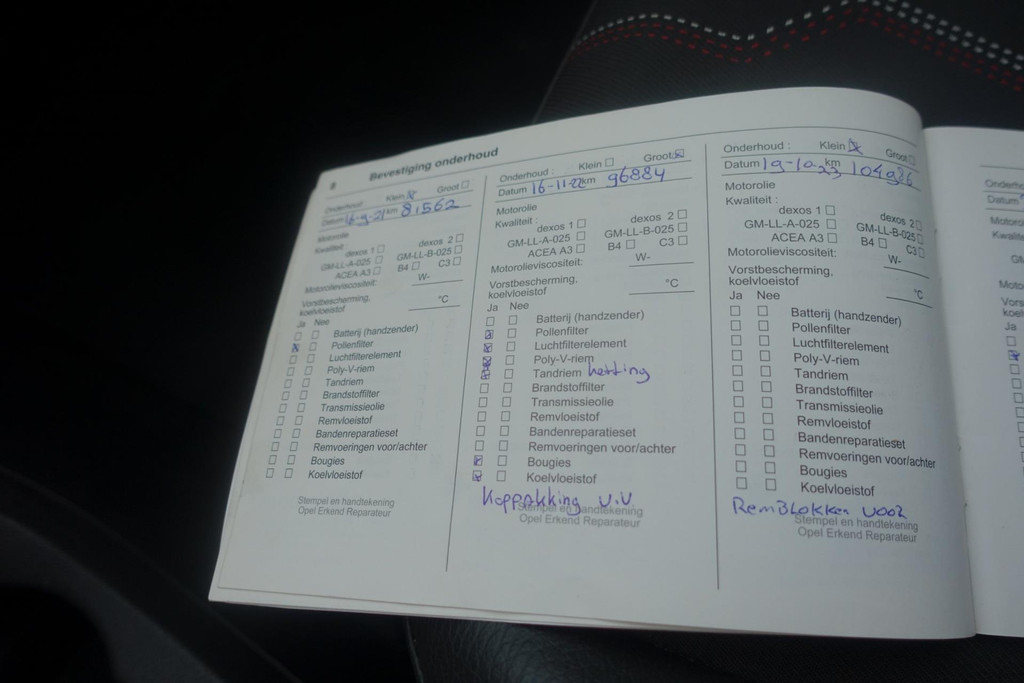 8 Bevestiging onderhoud
Onderhoud : Klein Groot
Datum 16-9-21 km 81562
Motorolie
Kwaliteit :
dexos 1 dexos 2
GM-LL-A-025 GM-LL-B-025
ACEA A3 B4 C3
Motorolieviscositeit: W-
Vorstbescherming,
koelvloeistof °C
Ja Nee
Batterij (handzender)
Pollenfilter
Luchtfilterelement
Poly-V-riem
Tandriem
Brandstoffilter
Transmissieolie
Remvloeistof
Bandenreparatieset
Remvoeringen voor/achter
Bougies
Koelvloeistof
Stempel en handtekening
Opel Erkend Reparateur
Onderhoud : Klein Groot
Datum 16-11-22 km 96884
Motorolie
Kwaliteit :
dexos 1 dexos 2
GM-LL-A-025 GM-LL-B-025
ACEA A3 B4 C3
Motorolieviscositeit: W-
Vorstbescherming,
koelvloeistof °C
Ja Nee
Batterij (handzender)
Pollenfilter
Luchtfilterelement
Poly-V-riem
Tandriem ketting
Brandstoffilter
Transmissieolie
Remvloeistof
Bandenreparatieset
Remvoeringen voor/achter
Bougies
Koelvloeistof
Koppakking V.V.
Stempel en handtekening
Opel Erkend Reparateur
Onderhoud : Klein Groot
Datum 19-10-23 km 104986
Motorolie
Kwaliteit :
dexos 1 dexos 2
GM-LL-A-025 GM-LL-B-025
ACEA A3 B4 C3
Motorolieviscositeit: W-
Vorstbescherming,
koelvloeistof °C
Ja Nee
Batterij (handzender)
Pollenfilter
Luchtfilterelement
Poly-V-riem
Tandriem
Brandstoffilter
Transmissieolie
Remvloeistof
Bandenreparatieset
Remvoeringen voor/achter
Bougies
Koelvloeistof
RemBlokken VOOR
Stempel en handtekening
Opel Erkend Reparateur